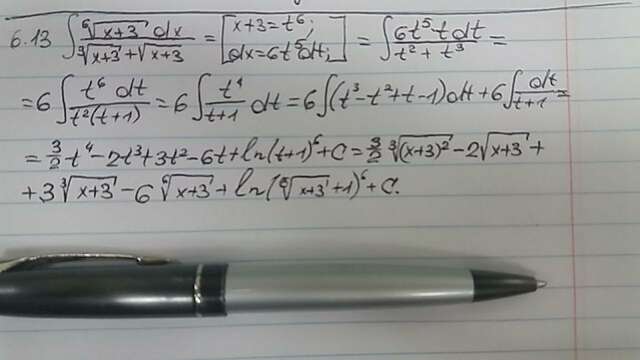 6.13 ∫ ⁶√(x+3) dx / (³√(x+3) + √(x+3)) = [x+3=t⁶; dx=6t⁵dt;] = ∫ 6t⁵·t dt / (t² + t³) =
= 6 ∫ t⁶ dt / (t²(t+1)) = 6 ∫ t⁴/(t+1) dt = 6 ∫ (t³-t²+t-1) dt + 6 ∫ dt/(t+1) =
= 3/2 t⁴ - 2t³ + 3t² - 6t + ln(t+1)⁶ + C = 3/2 ³√((x+3)²) - 2√(x+3) +
+ 3 ³√(x+3) - 6 ⁶√(x+3) + ln(⁶√(x+3) + 1)⁶ + C.